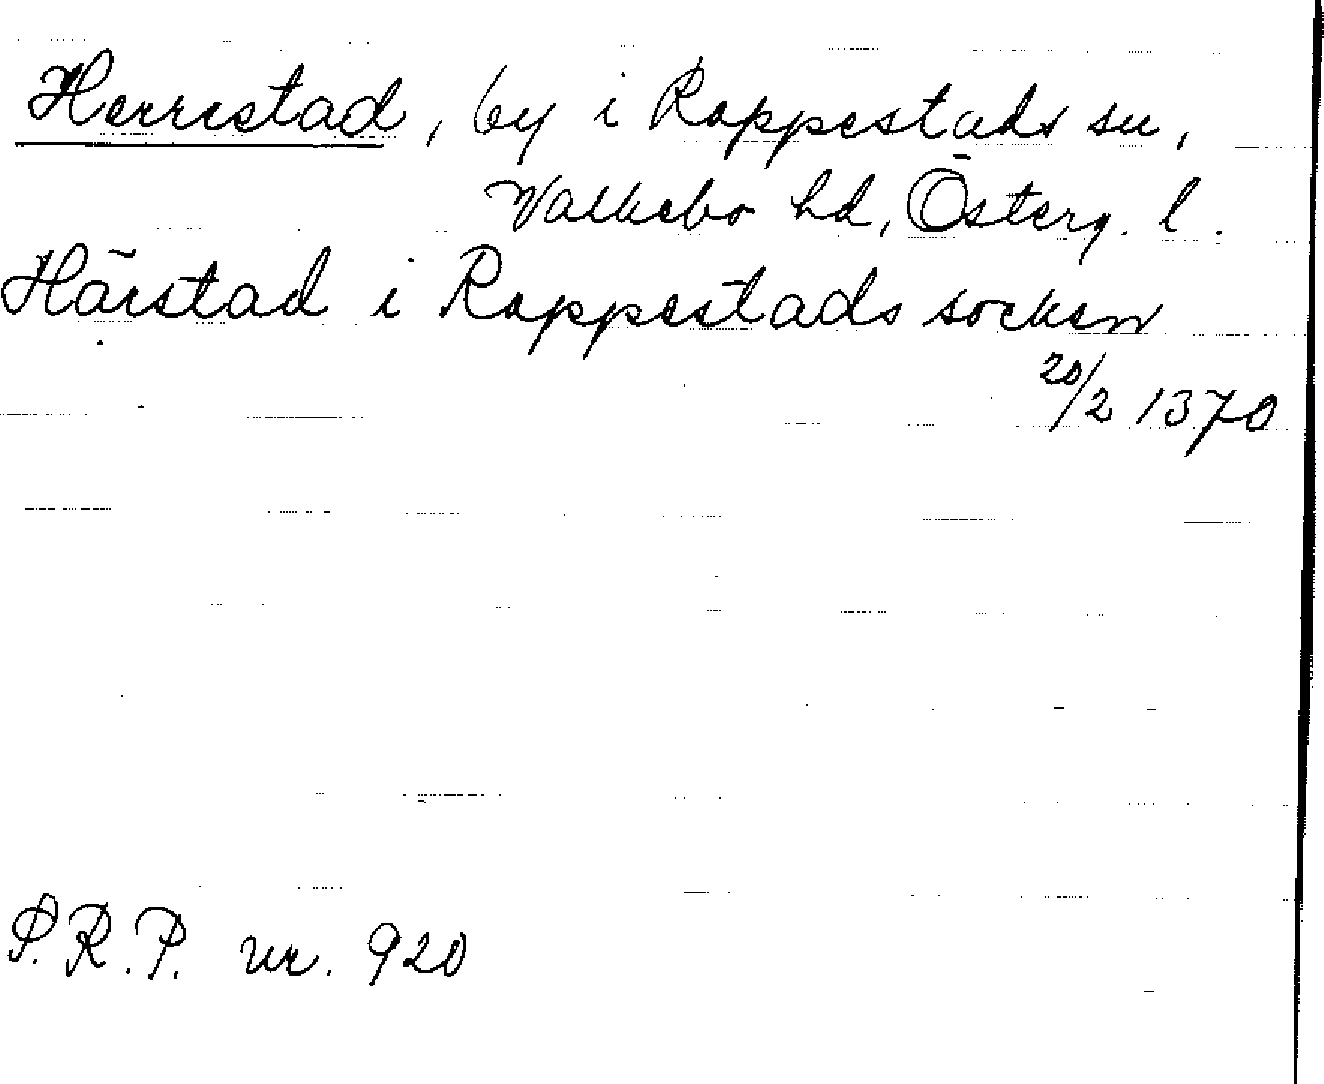 Herrestad, by i Rappestads sn,
Valkebo hd, Österg. l.
Härstad i Rappestads socken
20/2 1370
S.R.P. nr. 920